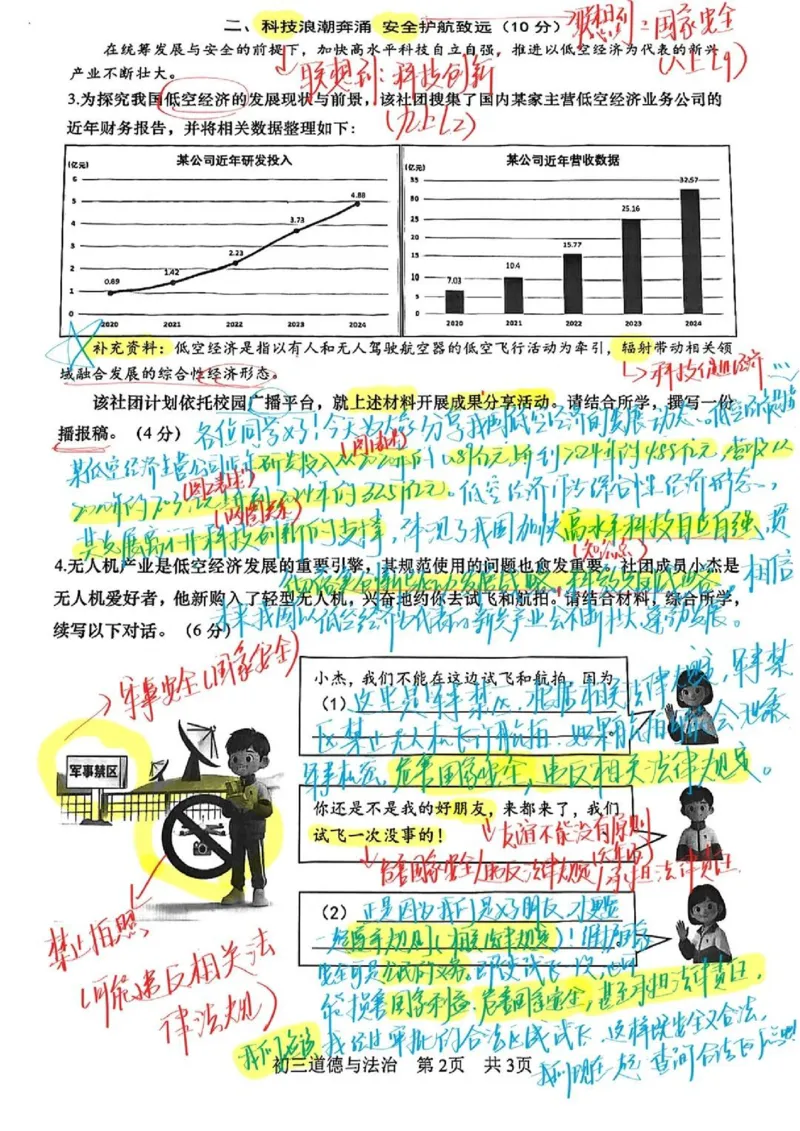 二、科技浪潮奔涌 安全护航致远（10 分）
联想到：国家安全
（八上L9）
在统筹发展与安全的前提下，加快高水平科技自立自强，推进以低空经济为代表的新兴
产业不断壮大。
联想到：科技创新
（九上L2）
3.为探究我国低空经济的发展现状与前景，该社团搜集了国内某家主营低空经济业务公司的
近年财务报告，并将相关数据整理如下：
某公司近年研发投入
(亿元)
6
5
4
3
2
1
0
0.89
1.42
2.23
3.73
4.88
2020 2021 2022 2023 2024
某公司近年营收数据
(亿元)
35
30
25
20
15
10
5
0
7.03
10.4
15.77
25.16
32.57
2020 2021 2022 2023 2024
补充资料：低空经济是指以有人和无人驾驶航空器的低空飞行活动为牵引，辐射带动相关领
域融合发展的综合性经济形态。
科技促进经济
该社团计划依托校园广播平台，就上述材料开展成果分享活动。请结合所学，撰写一份
播报稿。（4 分）
各位同学好！今天为大家分享我国低空经济的发展动态。
某低空经济主营公司近年研发投入从2020年的0.89亿元升到2024年的4.88亿元，营收从
2020年的7.03亿 2024年的32.5亿元。低空经济作为综合性经济形态，
其发展离不开科技创新的支撑，体现了我国加快高水平科技自立自强，贯
（知识点）
4.无人机产业是低空经济发展的重要引擎，其规范使用的问题也愈发重要。社团成员小杰是
无人机爱好者，他新购入了轻型无人机，兴奋地约你去试飞和航拍。请结合材料，综合所学，
续写以下对话。（6 分）
相信
未来我国以低空经济为代表的新兴产业会不断壮大，蓬勃发展。
军事安全（国家安全）
军事禁区
禁止拍照
（可能违反相关法
律法规）
小杰，我们不能在这边试飞和航拍，因为
（1）这里是军事禁区，根据相关法律规定，军事禁
区禁止无人机飞行航拍，如果航拍 会泄露
军事机密，危害国家安全，违反相关法律规定。
你还是不是我的好朋友，来都来了，我们
试飞一次没事的！
友谊不能没有原则
危害国家安全/违反法律法规/承担法律责任
（2）正是因为我们是好朋友，才更要
一起遵守规则（相关法律规定）！维护国家
安全是公民的义务，即使试飞一次，也可
能损害国家利益、危害国家安全，甚至承担法律责任，
我们应该 经过审批的合法区域试飞，这样既安全又合法，
我们现在一起查询合法的
初三道德与法治 第2页 共3页